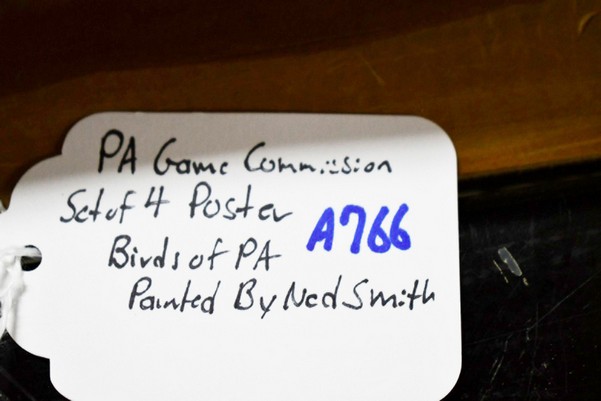 PA Game Commission
Set of 4 Poster
A766
Birds of PA
Painted By Ned Smith